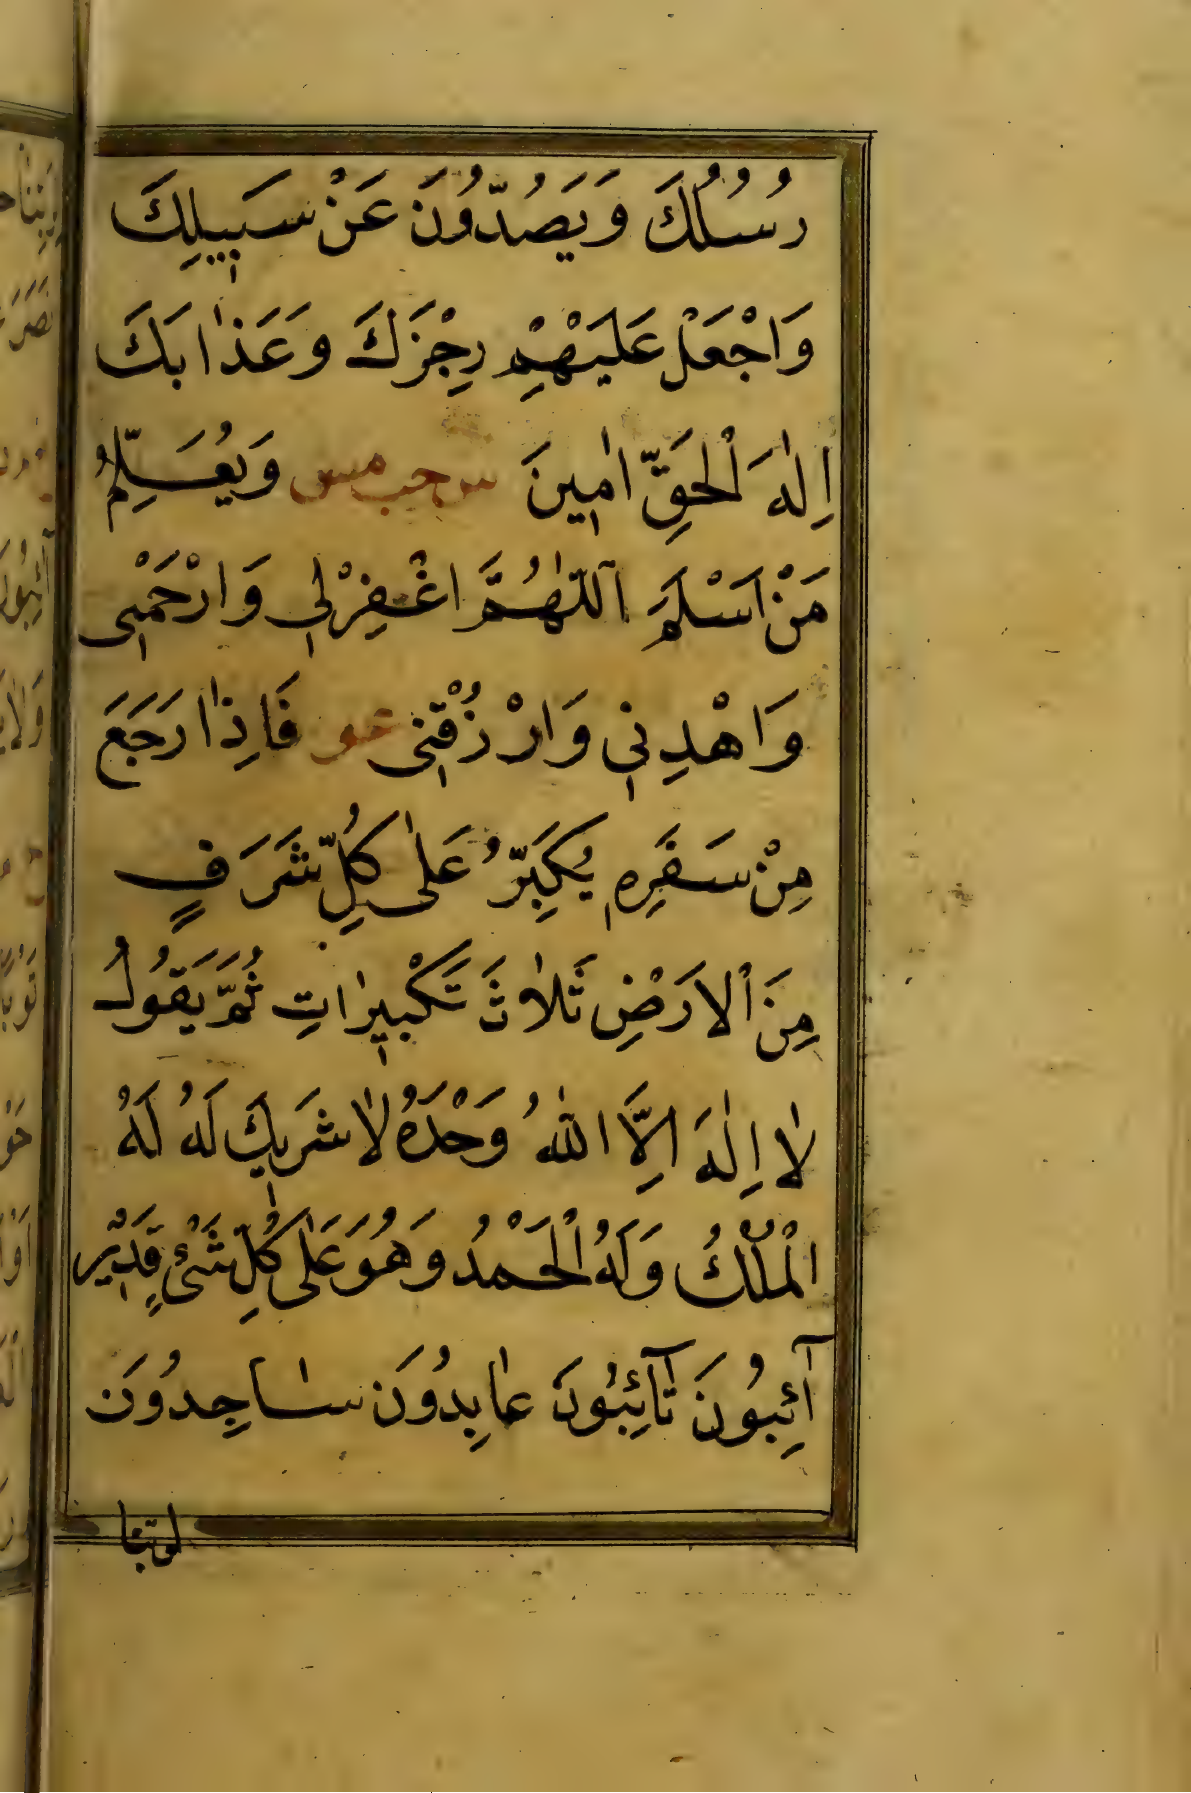 رُسُلَكَ وَيَصُدُّونَ عَنْ سَبِيلِكَ
وَاجْعَلْ عَلَيْهِمْ رِجْزَكَ وَعَذَابَكَ
اِلٰهَ الْحَقِّ اٰمِينَ س حب مس وَيُعَلِّمُ
مَنْ اَسْلَمَ اَللّٰهُمَّ اغْفِرْلِي وَارْحَمْنِي
وَاهْدِنِي وَارْزُقْنِي عو فَاِذَا رَجَعَ
مِنْ سَفَرِهِ يُكَبِّرُ عَلٰى كُلِّ شَرَفٍ
مِنَ الْاَرْضِ ثَلاٰثَ تَكْبِيرَاتٍ ثُمَّ يَقُولُ
لاٰ اِلٰهَ اِلَّا اللّٰهُ وَحْدَهُ لاٰ شَرِيكَ لَهُ لَهُ
الْمُلْكُ وَلَهُ الْحَمْدُ وَهُوَ عَلٰى كُلِّ شَيْءٍ قَدِيْر
آئِبُونَ تَآئِبُونَ عٰابِدُونَ سٰاجِدُونَ
لربنا